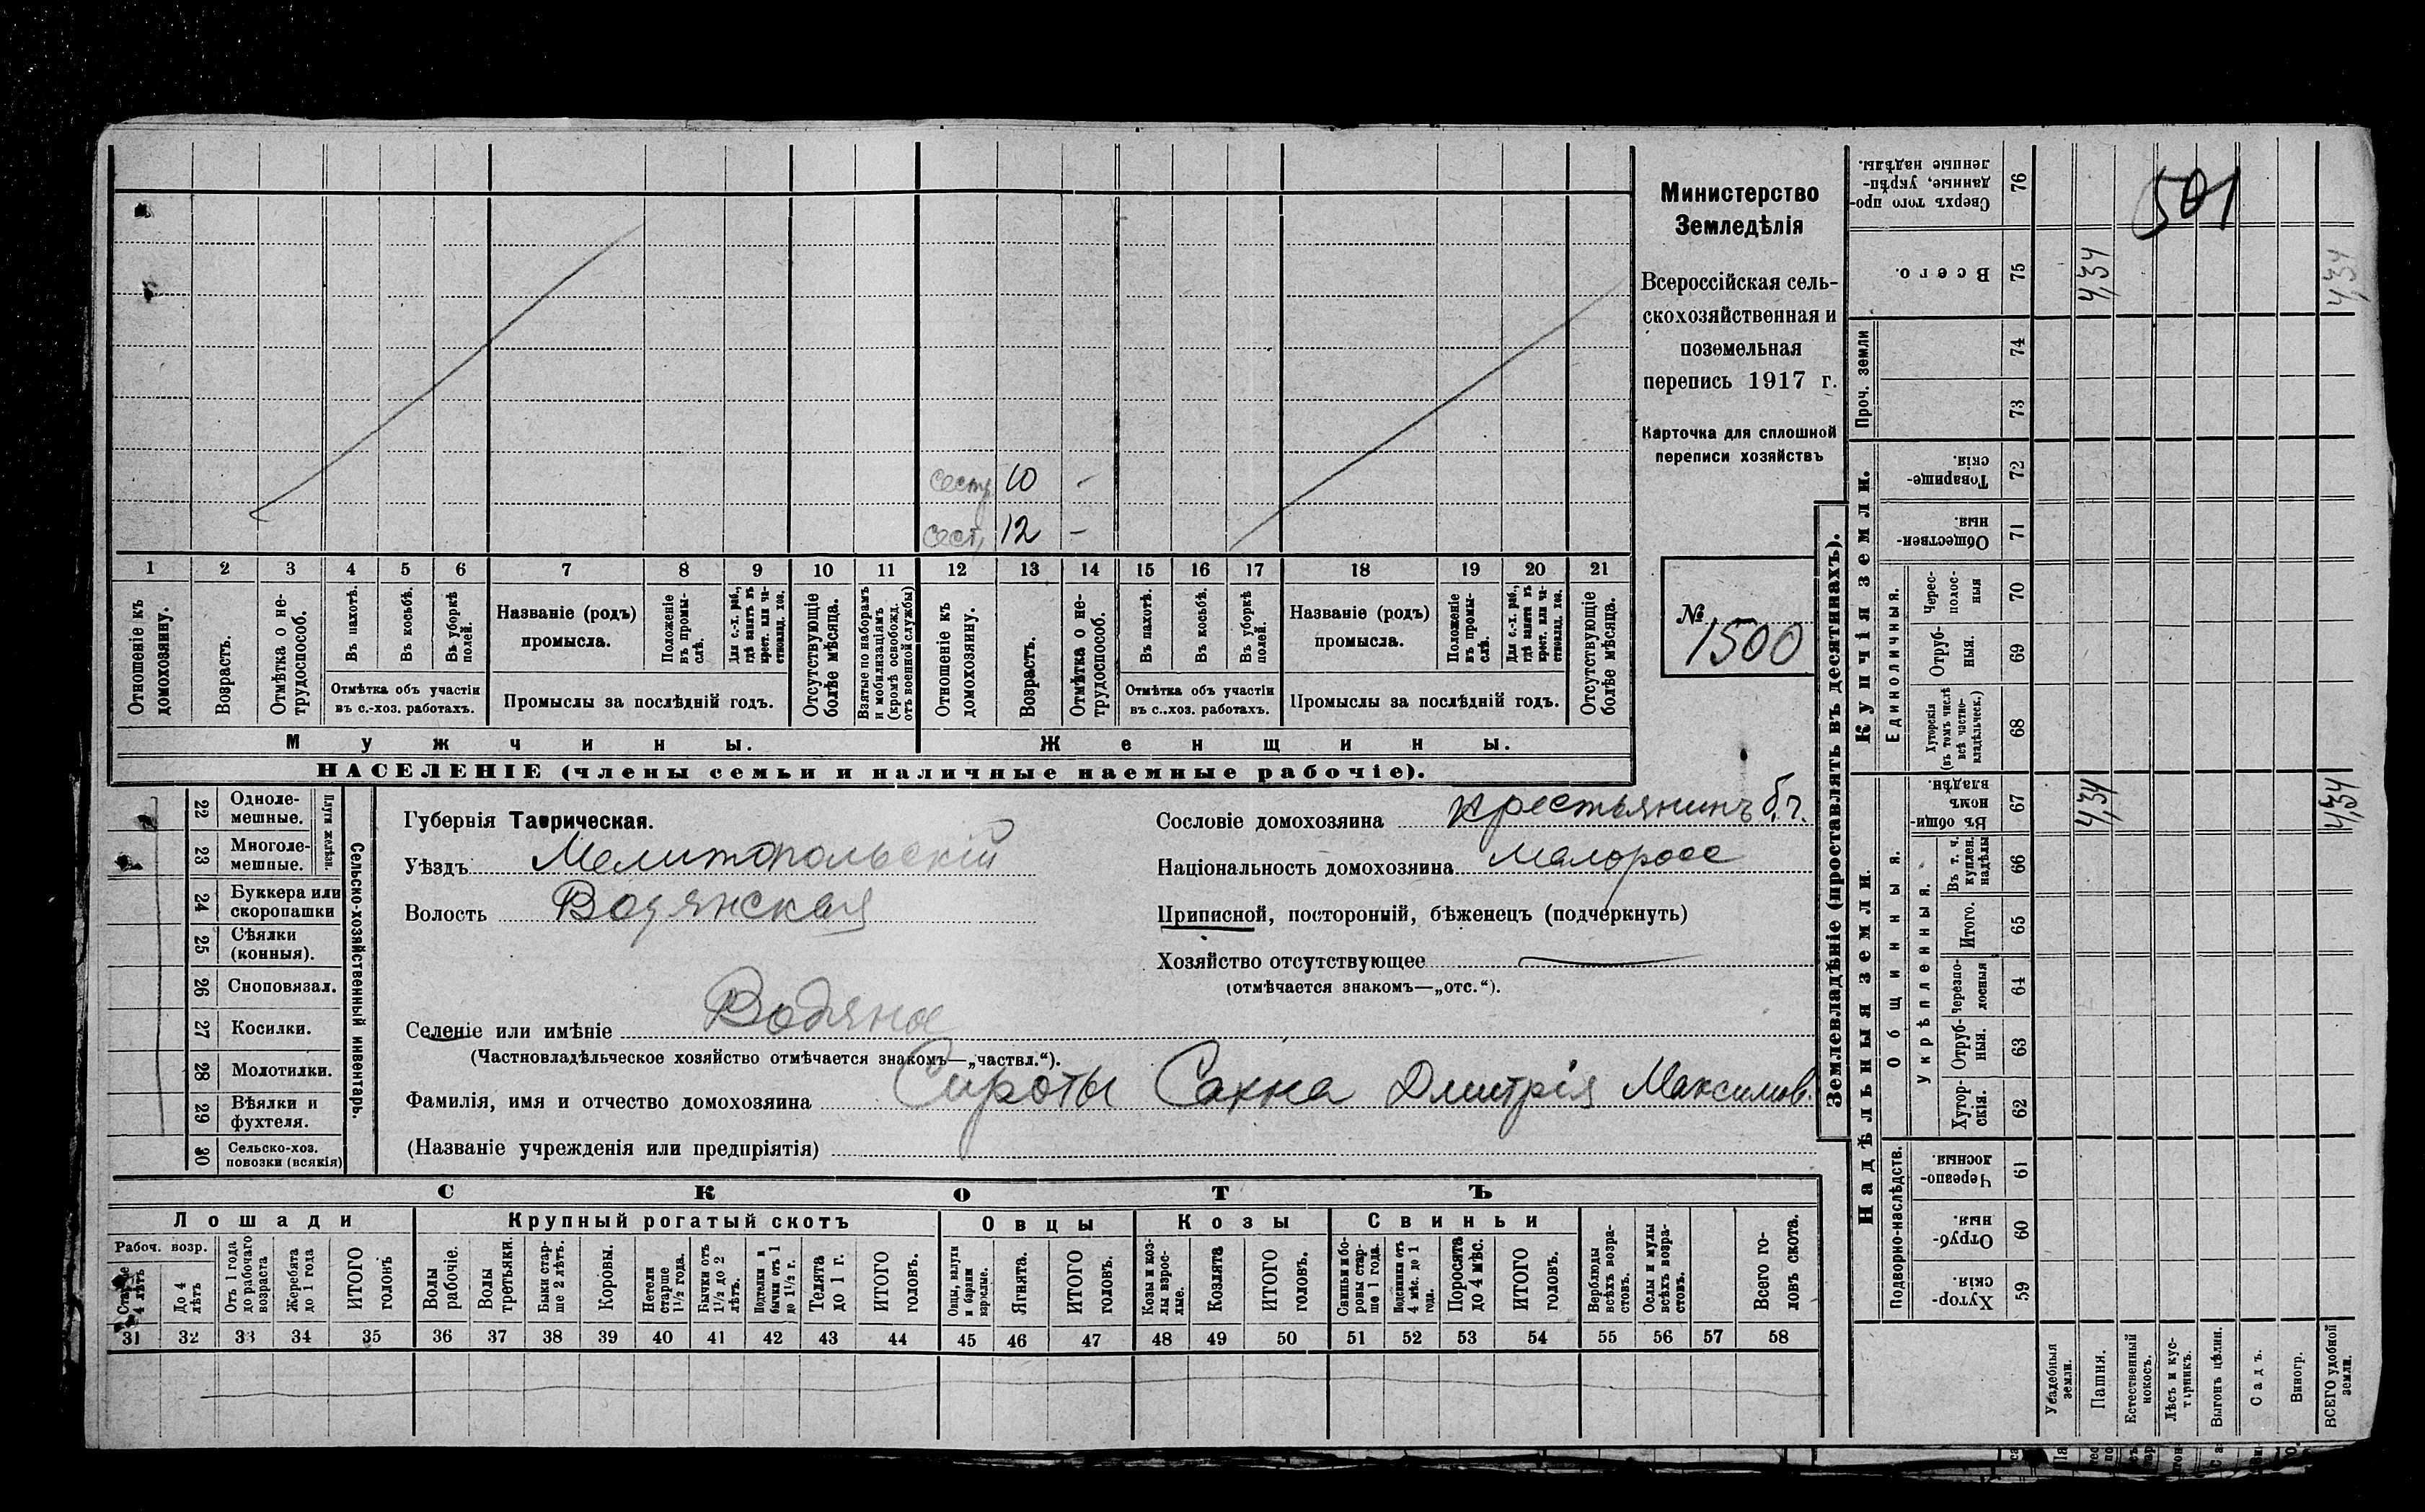 Министерство
Земледѣлія
Всероссійская сель-
скохозяйственная и
поземельная
перепись 1917 г.
Карточка для сплошной
переписи хозяйствъ
№
1500
сестр. 10 -
сест. 12 -
1 2 3 4 5 6 7 8 9 10 11 12 13 14 15 16 17 18 19 20 21
Отношеніе къ домохозяину.
Возрастъ.
Отмѣтка о не-трудоспособ.
Въ пахотѣ.
Въ косьбѣ.
Въ уборкѣ полей.
Отмѣтка объ участіи
въ с.-хоз. работахъ.
Названіе (родъ)
промысла.
Положеніе въ промы-слѣ.
Для с.-х. раб., гдѣ занятъ въ крест. или ча-стновлад. хоз.
Промыслы за послѣдній годъ.
Отсутствующіе болѣе мѣсяца.
Взятые по наборамъ и мобилизаціямъ (кромѣ освобожд. отъ военной службы)
Отношеніе къ домохозяину.
Возрастъ.
Отмѣтка о не-трудоспособ.
Въ пахотѣ.
Въ косьбѣ.
Въ уборкѣ полей.
Отмѣтка объ участіи
въ с.-хоз. работахъ.
Названіе (родъ)
промысла.
Положеніе въ промы-слѣ.
Для с.-х. раб., гдѣ занятъ въ крест. или ча-стновлад. хоз.
Промыслы за послѣдній годъ.
Отсутствующіе болѣе мѣсяца.
Мужчины. Женщины.
НАСЕЛЕНІЕ (члены семьи и наличные наемные рабочіе).
22 Одноле-мешные.
23 Многоле-мешные.
Плуги желѣзн.
24 Буккера или скоропашки
25 Сѣялки (конныя).
26 Сноповязал.
27 Косилки.
28 Молотилки.
29 Вѣялки и фухтеля.
30 Сельско-хоз. повозки (всякія)
Сельско-хозяйственный инвентарь.
Губернія Таврическая.
Уѣздъ Мелитопольскій
Волость Водянская
Сословіе домохозяина крестьянинъ б.ч.
Національность домохозяина малоросс
Приписной, посторонній, бѣженецъ (подчеркнуть)
Хозяйство отсутствующее
(отмѣчается знакомъ—„отс.“).
Селеніе или имѣніе Водяное
(Частновладѣльческое хозяйство отмѣчается знакомъ—„частвл.“).
Фамилія, имя и отчество домохозяина Сироты Сахна Дмитрія Максимов.
(Названіе учрежденія или предпріятія)
СКОТЪ
Лошади Крупный рогатый скотъ Овцы Козы Свиньи
Рабоч. возр.
Старше 4 лѣтъ
До 4 лѣтъ
Отъ 1 года до рабочаго возраста
Жеребята до 1 года
ИТОГО головъ
Волы рабочіе.
Волы третьяки.
Быки стар-ше 2 лѣтъ.
Коровы.
Нетели старше 1½ года.
Бычки отъ 1½ до 2 лѣтъ.
Подтелки и бычки отъ 1 до 1½ г.
Телята до 1 г.
ИТОГО головъ.
Овцы, валухи и бараны взрослые.
Ягнята.
ИТОГО головъ.
Козы и коз-лы взрос-лые.
Козлята
ИТОГО головъ.
Свиньи и бо-ровы стар-ше 1 года.
Подсвинки отъ 4 мѣс. до 1 года.
Поросята до 4 мѣс.
ИТОГО головъ.
Верблюды всѣхъ возра-стовъ.
Ослы и мулы всѣхъ возра-стовъ.
Всего го-ловъ скота.
31 32 33 34 35 36 37 38 39 40 41 42 43 44 45 46 47 48 49 50 51 52 53 54 55 56 57 58
Землевладѣніе (проставлять въ десятинахъ).
Купчія земли.
Надѣльныя земли.
Сверхъ того про-данные, укрѣп-ленные надѣлы. 76
501
Всего. 75 4,34 4,34
Проч. земли 74
73
Товарище-скія. 72
Обществен-ныя. 71
Единоличныя.
Черес-полос-ныя 70
Отруб-ныя. 69
Хуторскія (въ томъ числѣ всѣ частно-владѣльческ.) 68
Общинныя.
Въ общи-номъ владѣн. 67 4,34 4,34
Укрѣпленныя.
Въ т. ч. куплен. надѣлы 66
Итого. 65
Черезпо-лосныя 64
Отруб-ныя. 63
Хутор-скія. 62
Подворно-наслѣдств.
Черезпо-лосныя. 61
Отруб-ныя. 60
Хутор-скія. 59
Усадебныя земли.
Пашня.
Естественный покосъ.
Лѣсъ и кус-тарникъ.
Выгонъ цѣлин.
Садъ.
Виногр.
ВСЕГО удобной земли.